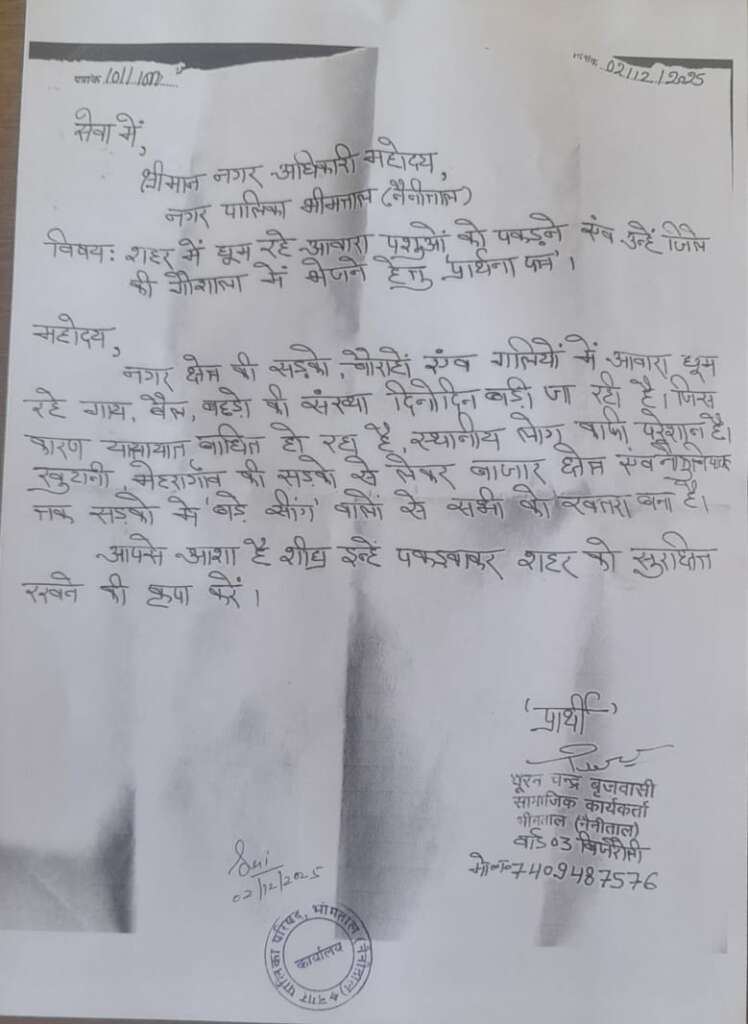 पत्रांक 101/1000 दिनांक 02/12/2025
सेवा में,
श्रीमान नगर अधिकारी महोदय,
नगर पालिका भीमताल (नैनीताल)
विषय: शहर में घूम रहे आवारा पशुओं को पकड़ने एंव उन्हें जिले
की गौशाला में भेजने हेतु 'प्रार्थना पत्र'।
महोदय,
नगर क्षेत्र की सड़को, चौराहों एंव गलियों में आवारा घूम
रहे गाय, बैल, बछड़ो की संख्या दिनोदिन बड़ी जा रही है। जिस
कारण यातायात बाधित हो रहा है, स्थानीय लोग काफी परेशान है।
खुटानी, मेहरागाँव की सड़को से लेकर बाजार क्षेत्र एंव
तक सड़को में 'बड़े सींग' वालों से सभी को खतरा बना है।
आपसे आशा है शीघ्र इन्हें पकड़वाकर शहर को सुरक्षित
रखने की कृपा करें।
'प्रार्थी'
पूरन चन्द्र बृजवासी
सामाजिक कार्यकर्ता
भीमताल (नैनीताल)
वार्ड 03
मो०न०-7409487576
02/12/2025
नगर पालिका परिषद, भीमताल (नैनीताल)
कार्यालय